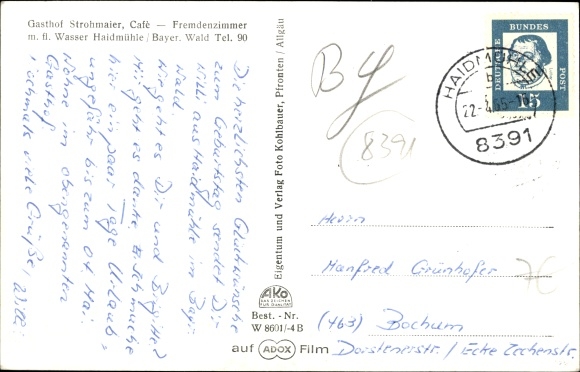 Gasthof Strohmaier, Cafè — Fremdenzimmer
m. fl. Wasser Haidmühle / Bayer. Wald Tel. 90
Die herzlichsten Glückwünsche
zum Geburtstag sendet Dir
Willi aus Haidmühle im Bayr.
Wald.
Wie geht es Dir und Brigitte?
Mir geht es danke. Ich mache
hier ein paar Tage Urlaub,
ungefähr bis zum 04. Mai.
Wohne im obengenannten
Gasthof.
Nochmals viele Grüße,
Willi
Eigentum und Verlag Foto Kohlbauer, Pfronten / Allgäu
AKo
DAS ZEICHEN
FÜR QUALITÄT
Best. - Nr.
W 8601/4 B
auf ADOX Film
By
8391
DEUTSCHE BUNDES POST
15
HAIDMÜHLE
b
8391
Herrn
Manfred Grünhofer
7€
(463) Bochum
Dorstenerstr. / Ecke Zechenstr.